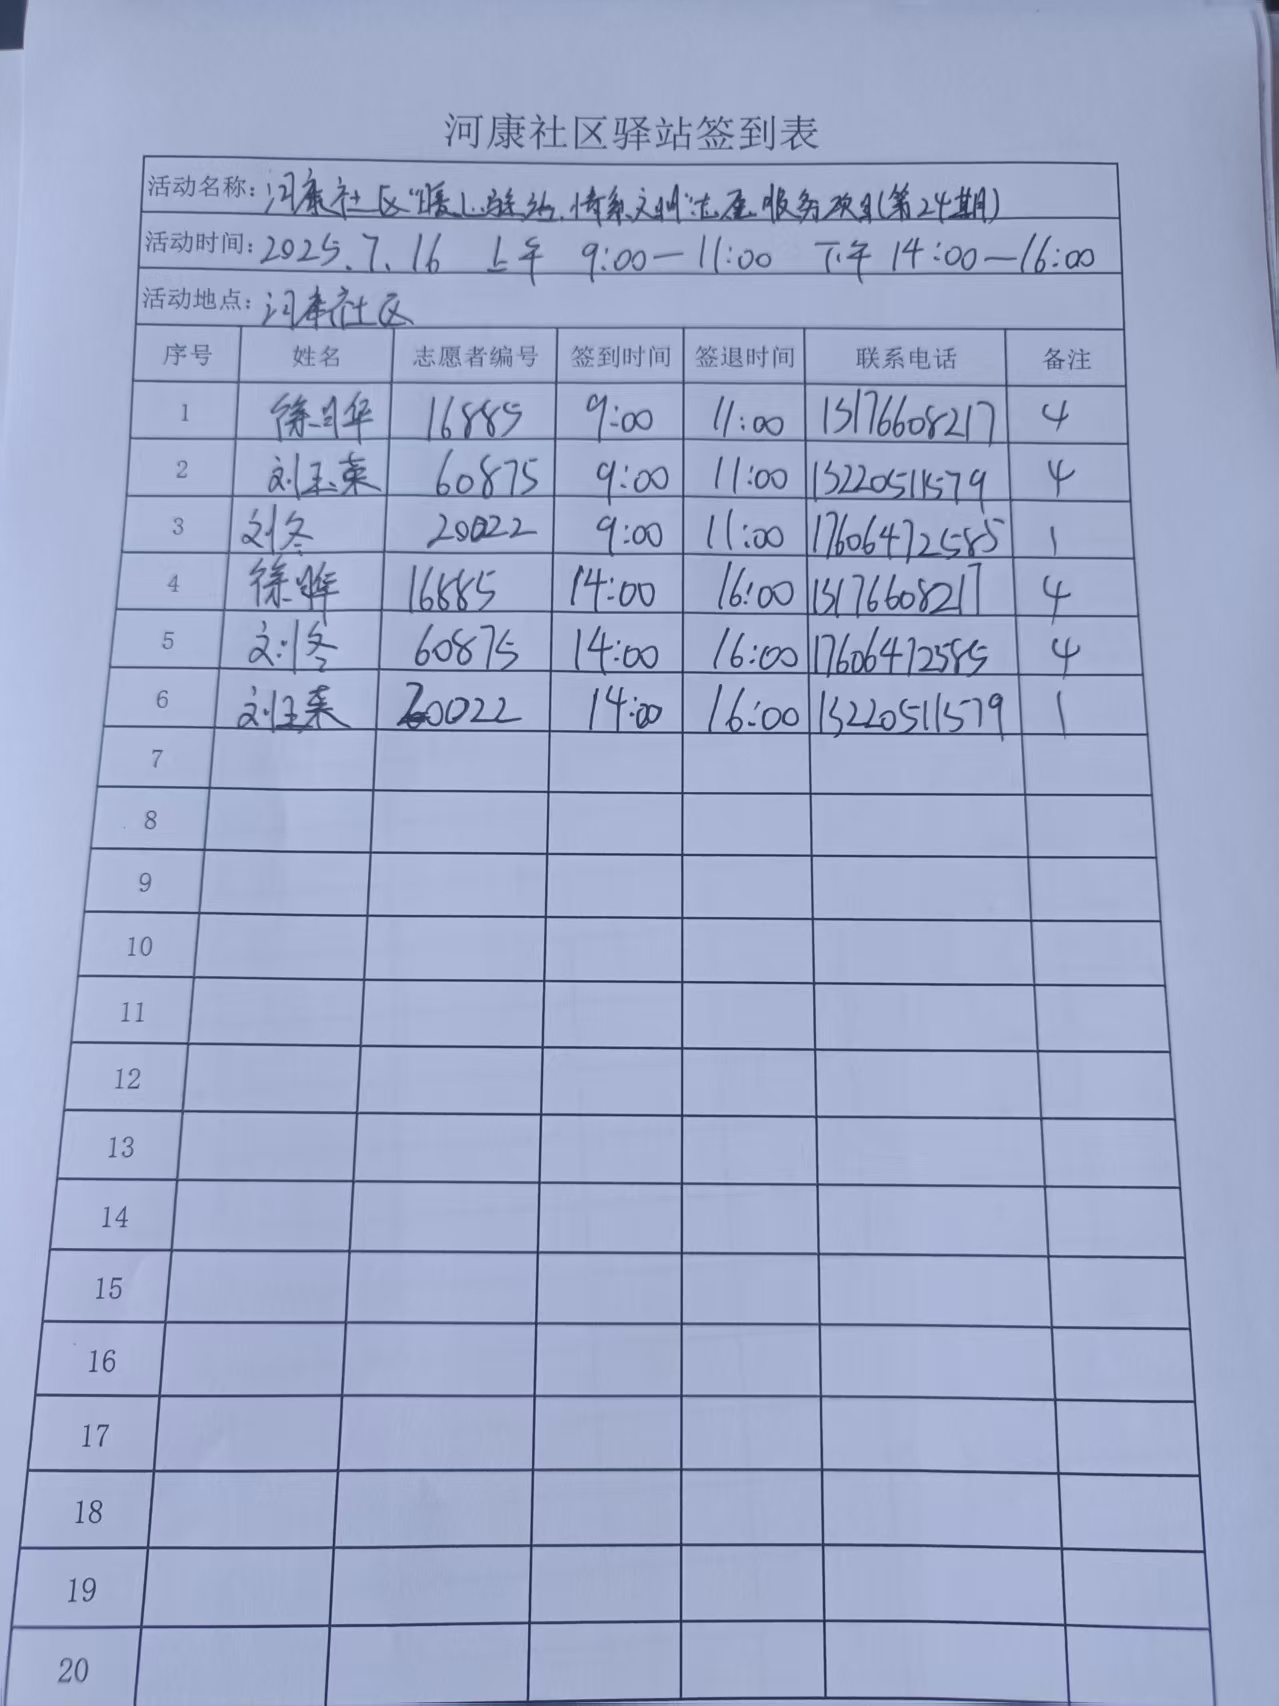 河康社区驿站签到表
活动名称: 河康社区“暖心驿站,情系文明”志愿服务项目(第24期)
活动时间: 2025.7.16 上午 9:00—11:00 下午 14:00—16:00
活动地点: 河康社区
序号 姓名 志愿者编号 签到时间 签退时间 联系电话 备注
1 徐 16885 9:00 11:00 13176608217 4
2 刘玉英 60875 9:00 11:00 13220511579 4
3 刘冬 20022 9:00 11:00 17606472585 1
4 徐 16885 14:00 16:00 13176608217 4
5 刘冬 60875 14:00 16:00 17606472585 4
6 刘玉英 20022 14:00 16:00 13220511579 1
7
8
9
10
11
12
13
14
15
16
17
18
19
20